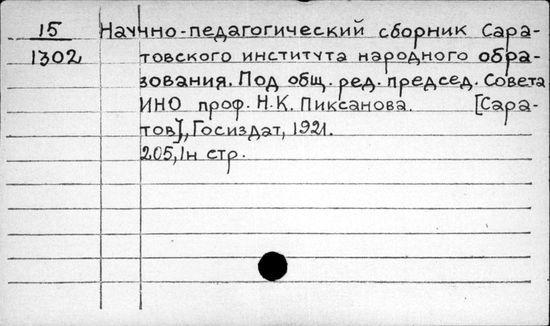 15 Научно-педагогический сборник Сара-
1302 товского института народного обра-
зования. Под общ. ред. председ. Совета
ИНО проф. Н.К. Пиксанова. [Сара-
тов], Госиздат, 1921.
205, 1н стр.